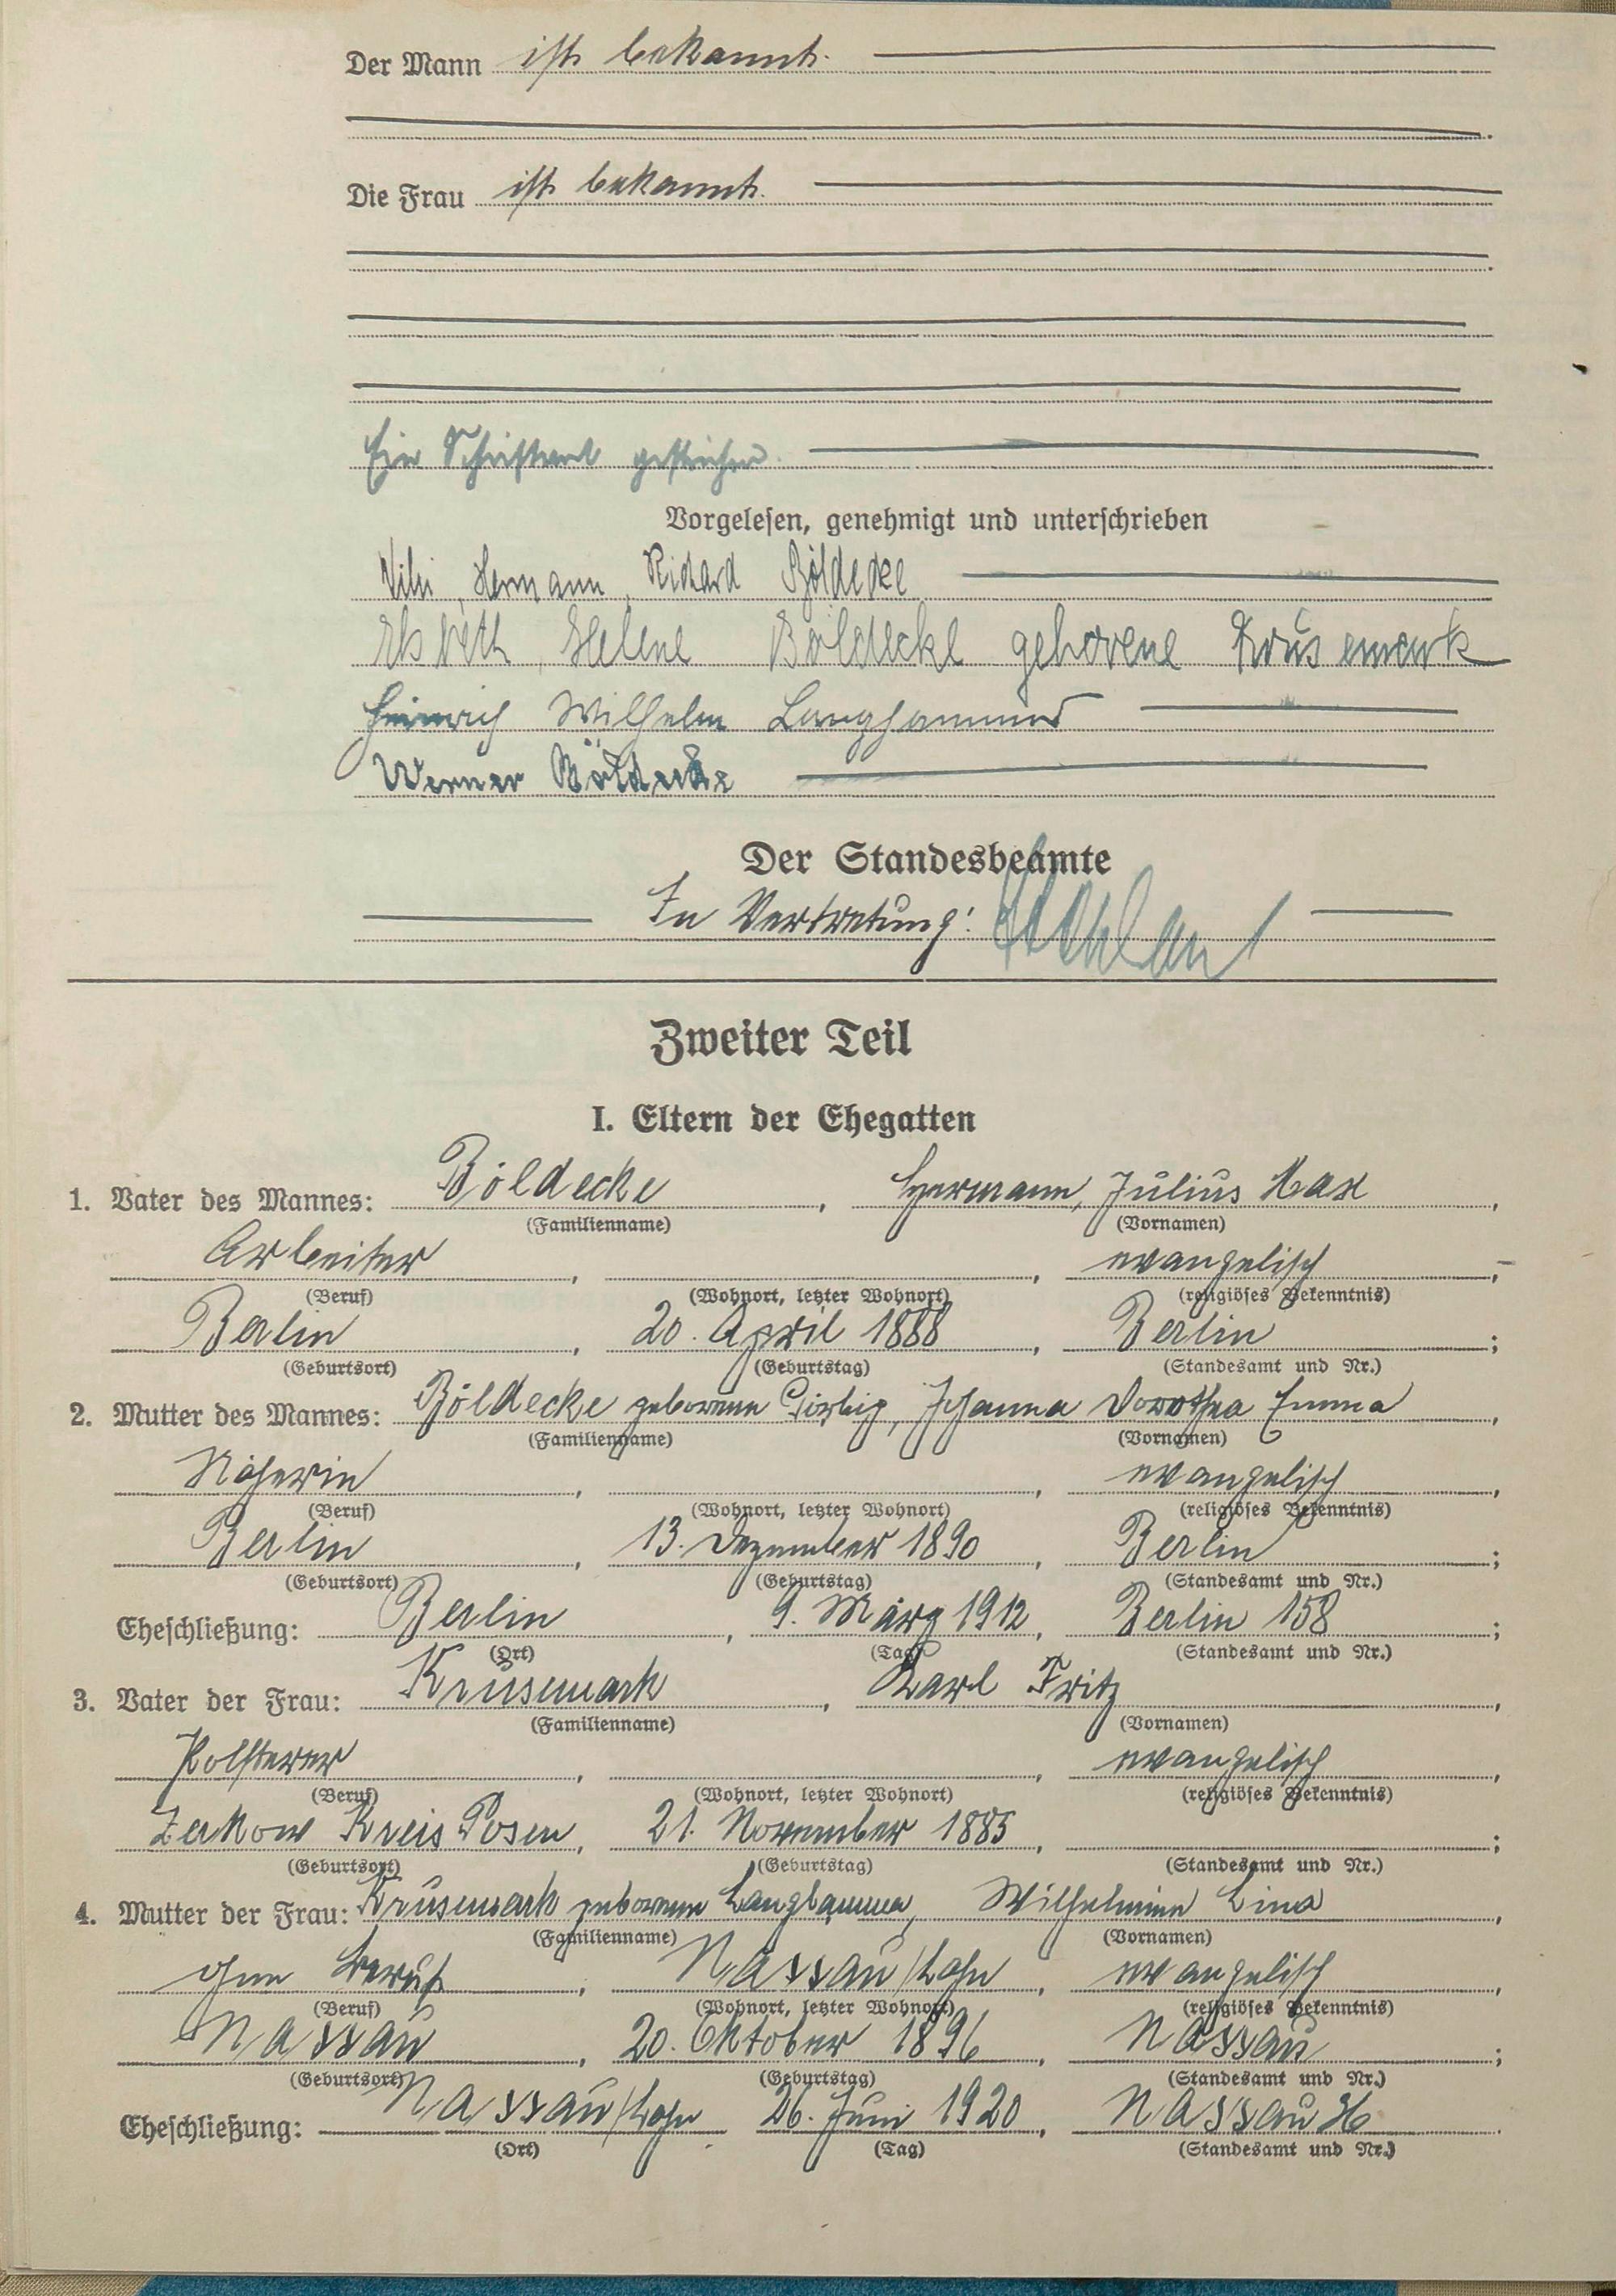 Der Mann ist bekannt.
Die Frau ist bekannt.
Ein Schriftwort gestrichen.
Vorgelesen, genehmigt und unterschrieben
Hermann, Richard Böldecke
Elsbeth, Helene Böldecke geborene Krusemark
Heinrich Wilhelm Langhammer
Werner Böldecke
Der Standesbeamte
In Vertretung:
Zweiter Teil
I. Eltern der Ehegatten
1. Vater des Mannes: Böldecke, Hermann, Julius Max,
(Familienname) (Vornamen)
Arbeiter, , evangelisch,
(Beruf) (Wohnort, letzter Wohnort) (religiöses Bekenntnis)
Berlin, 20. April 1888, Berlin;
(Geburtsort) (Geburtstag) (Standesamt und Nr.)
2. Mutter des Mannes: Böldecke geborene Görbig, Johanna Dorothea Emma,
(Familienname) (Vornamen)
Näherin, , evangelisch,
(Beruf) (Wohnort, letzter Wohnort) (religiöses Bekenntnis)
Berlin, 13. Dezember 1890, Berlin;
(Geburtsort) (Geburtstag) (Standesamt und Nr.)
Eheschließung: Berlin, 9. März 1912, Berlin 158;
(Ort) (Tag) (Standesamt und Nr.)
3. Vater der Frau: Krusemark, Karl Fritz,
(Familienname) (Vornamen)
Polsterer, , evangelisch,
(Beruf) (Wohnort, letzter Wohnort) (religiöses Bekenntnis)
Zerkow Kreis Posen, 21. November 1885, ;
(Geburtsort) (Geburtstag) (Standesamt und Nr.)
4. Mutter der Frau: Krusemark geborene Langhammer, Wilhelmine Lina,
(Familienname) (Vornamen)
ohne Beruf, Nassau/Lahn, evangelisch,
(Beruf) (Wohnort, letzter Wohnort) (religiöses Bekenntnis)
Nassau, 20. Oktober 1896, Nassau;
(Geburtsort) (Geburtstag) (Standesamt und Nr.)
Eheschließung: Nassau/Lahn 26. Juni 1920, Nassau
(Ort) (Tag) (Standesamt und Nr.)